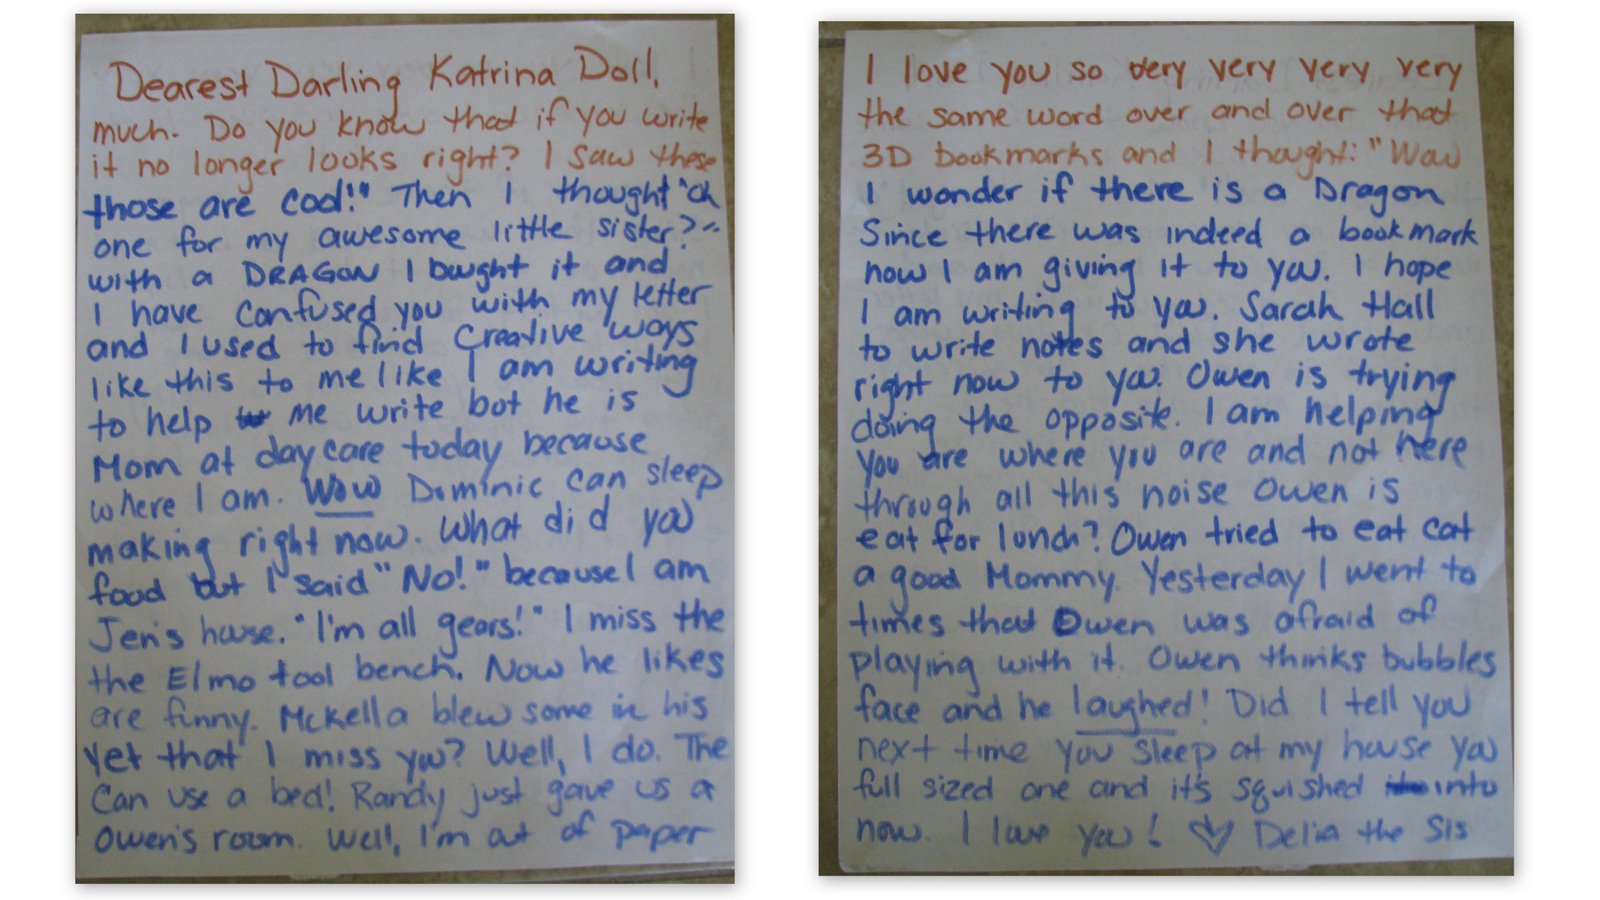 Dearest Darling Katrina Doll,
much. Do you know that if you write
it no longer looks right? I saw these
those are cool!" Then I thought "oh
one for my awesome little sister?"
with a DRAGON I bought it and
I have confused you with my letter
and I used to find creative ways
like this to me like I am writing
to help me write but he is
Mom at daycare today because
where I am. Wow Dominic can sleep
making right now. What did you
food but I said "No!" because I am
Jen's house. "I'm all gears!" I miss the
the Elmo tool bench. Now he likes
are funny. McKella blew some in his
yet that I miss you? Well, I do. The
Can use a bed! Randy just gave us a
Owen's room. Well, I'm out of paper
I love you so very very very very
the same word over and over that
3D bookmarks and I thought: "Wow
I wonder if there is a Dragon
Since there was indeed a bookmark
now I am giving it to you. I hope
I am writing to you. Sarah Hall
to write notes and she wrote
right now to you. Owen is trying
doing the opposite. I am helping
you are where you are and not here
through all this noise Owen is
eat for lunch? Owen tried to eat cat
a good Mommy. Yesterday I went to
times that Owen was afraid of
playing with it. Owen thinks bubbles
face and he laughed! Did I tell you
next time you sleep at my house you
full sized one and it's squished into
now. I love you! Delia the Sis